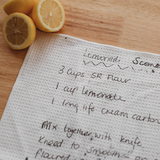 Lemonade Scones
3 cups SR Flour
1 cup lemonade
1 long life cream carton
Mix together with knife
knead to smooth
floured